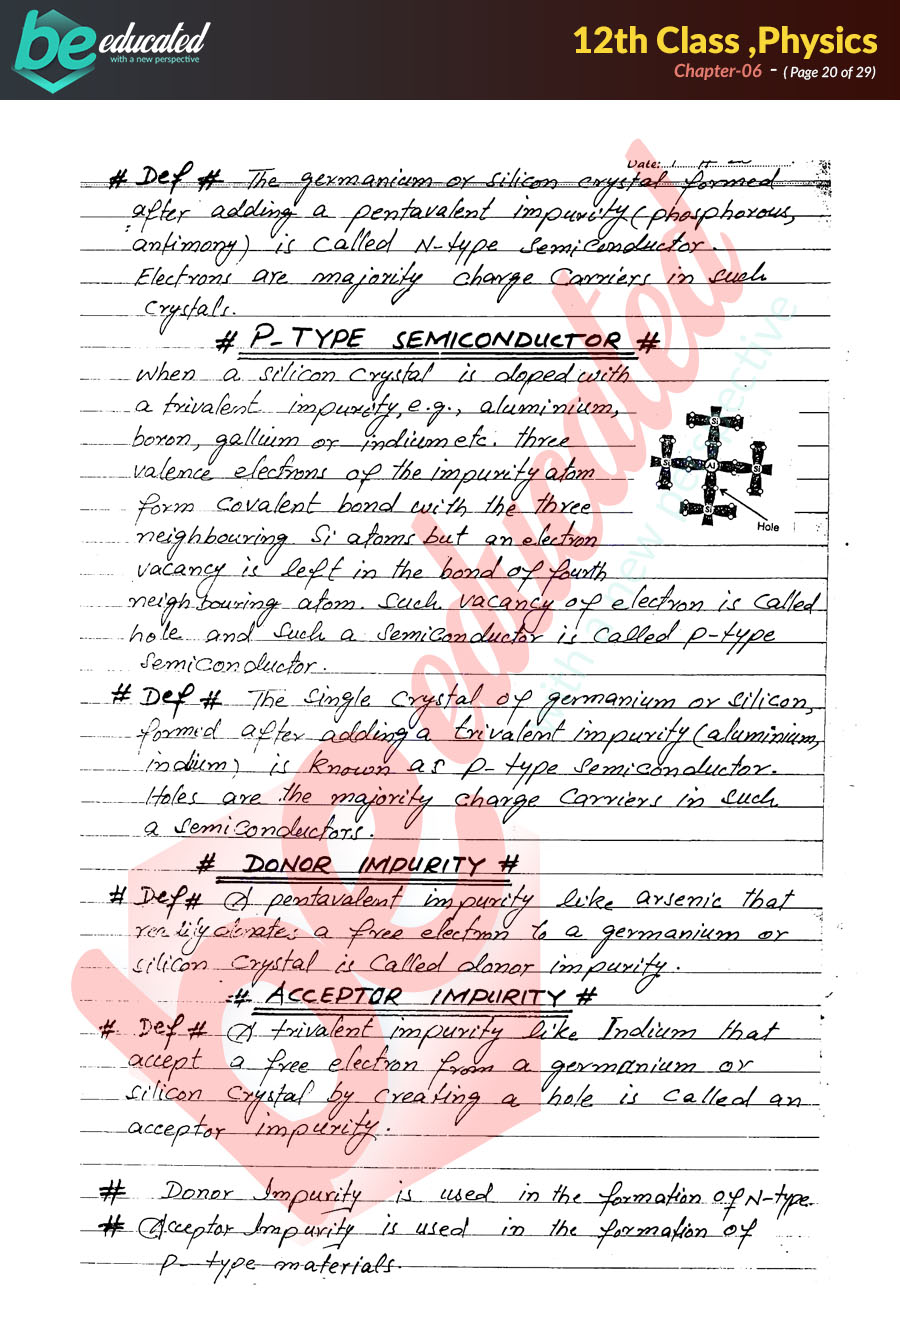 be educated
with a new perspective
12th Class ,Physics
Chapter-06 - ( Page 20 of 29)
Date:
# Def # The germanium or silicon crystal formed
after adding a pentavalent impurity (phosphorous,
antimony) is called N-type semiconductor.
Electrons are majority charge carriers in such
crystals.
# P-TYPE SEMICONDUCTOR #
when a silicon crystal is doped with
a trivalent impurity, e.g., aluminium,
boron, gallium or indium etc. three
valence electrons of the impurity atom
form covalent bond with the three
neighbouring Si atoms but an electron
vacancy is left in the bond of fourth
neighbouring atom. Such vacancy of electron is called
hole and such a semiconductor is called p-type
semiconductor.
Si
Si Al Si
Si
Hole
# Def # The single crystal of germanium or silicon,
formed after adding a trivalent impurity (aluminium,
indium) is known as p-type semiconductor.
Holes are the majority charge carriers in such
a semiconductors.
# DONOR IMPURITY #
# Def # A pentavalent impurity like arsenic that
readily donates a free electron to a germanium or
silicon crystal is called donor impurity.
# ACCEPTOR IMPURITY #
# Def # A trivalent impurity like Indium that
accept a free electron from a germanium or
silicon crystal by creating a hole is called an
acceptor impurity.
# Donor Impurity is used in the formation of N-type.
# Acceptor Impurity is used in the formation of
p-type materials.
be educated
with a new perspective